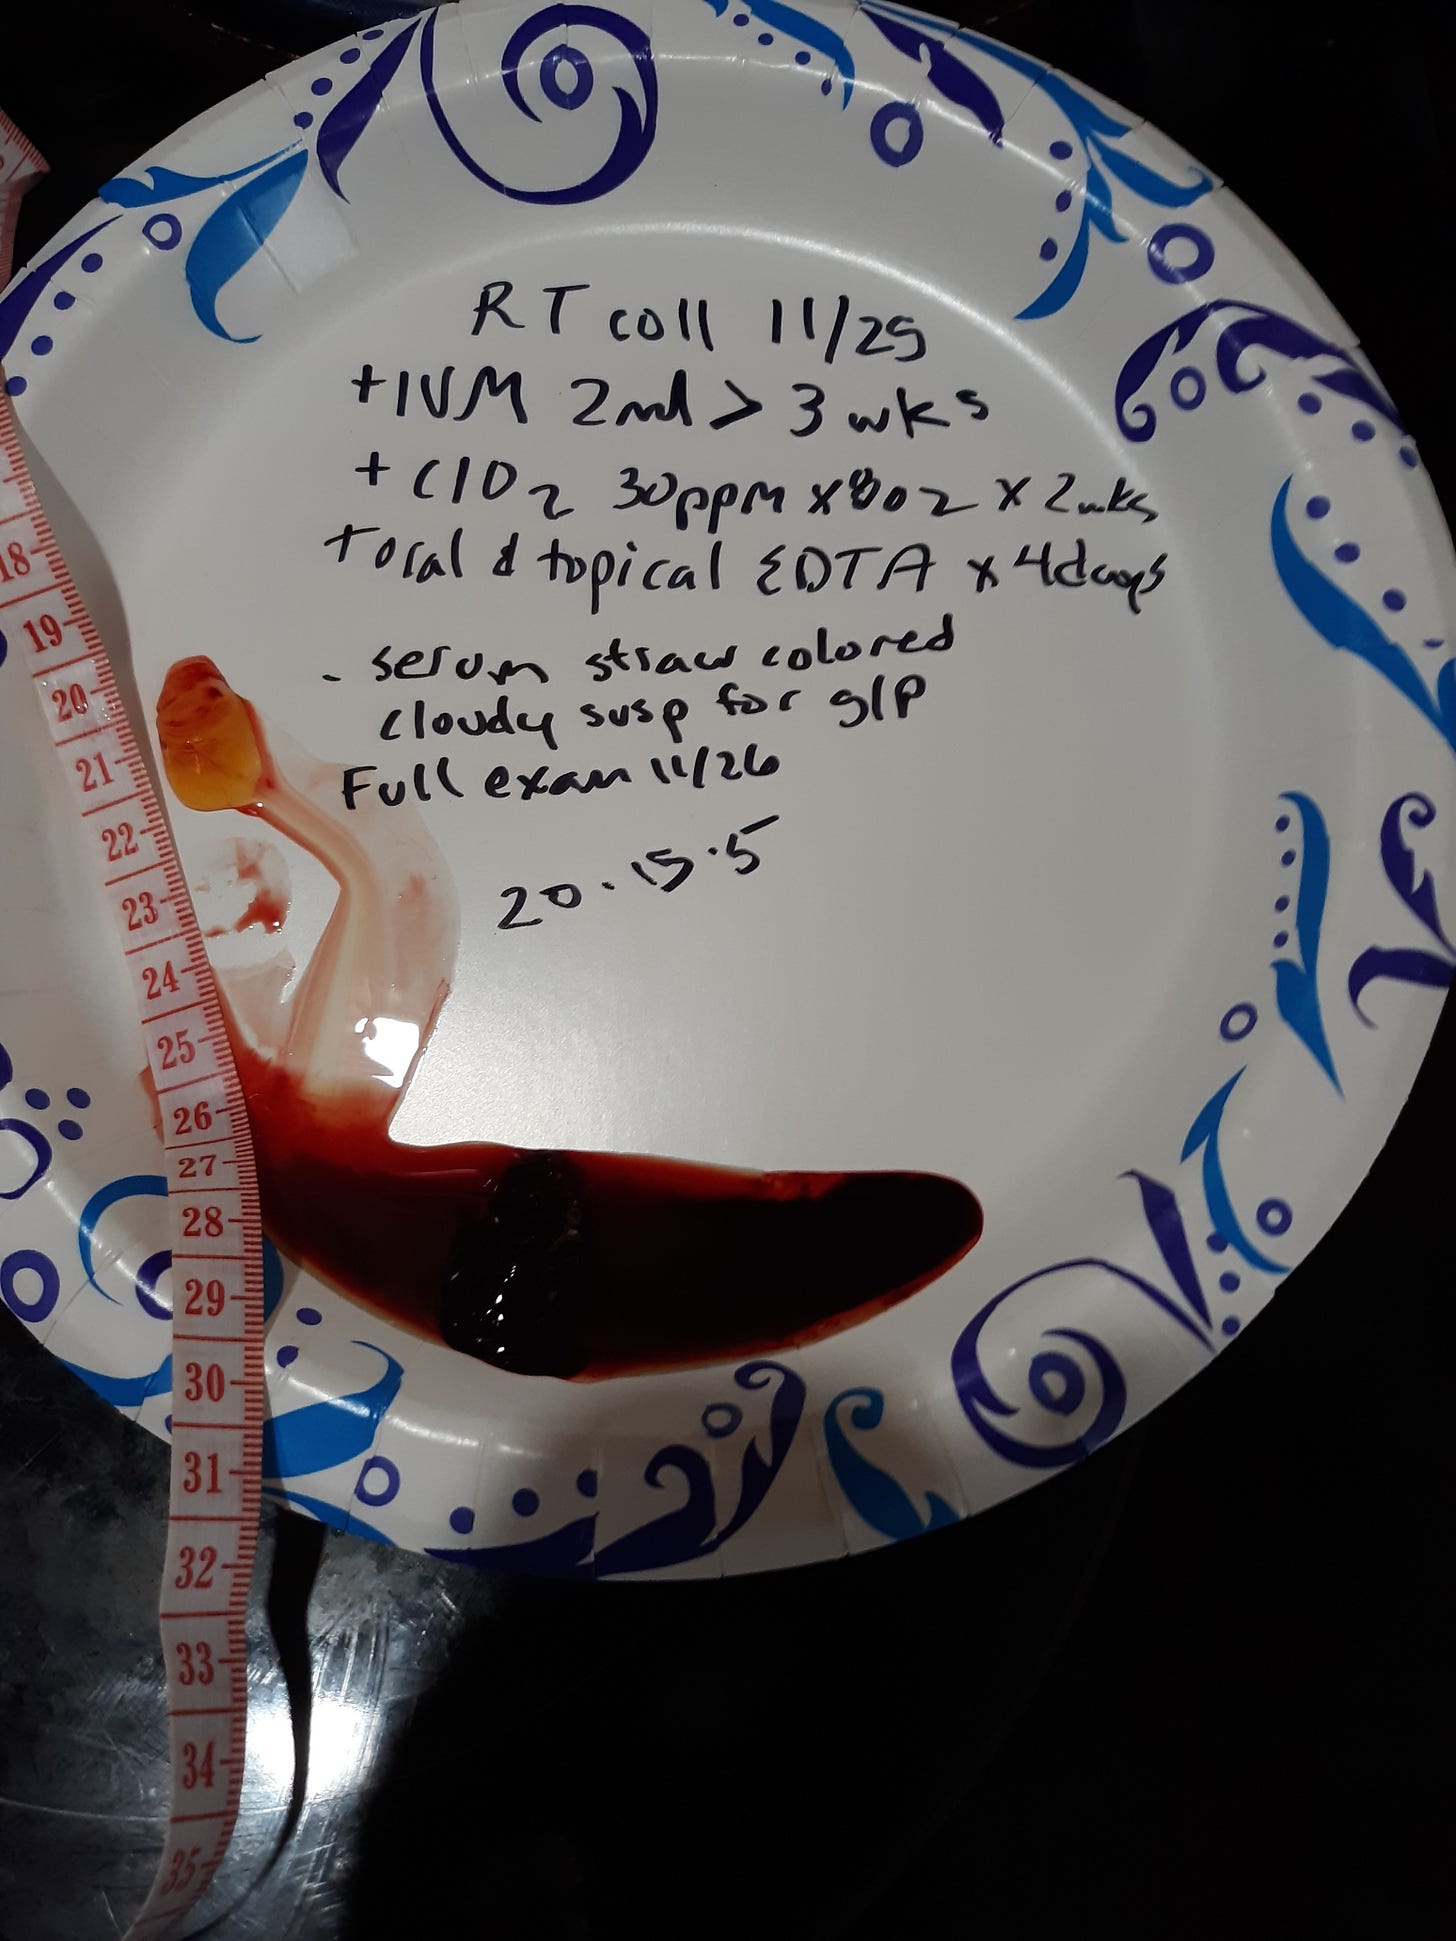 RT coll 11/25
+IVM 2ml > 3 wks
+ ClO2 30ppm x 8oz x 2wks
+oral & topical EDTA x 4days
- serum straw colored
cloudy susp for glp
Full exam 11/26
20.15.5
18
19
20
21
22
23
24
25
26
27
28
29
30
31
32
33
34
35